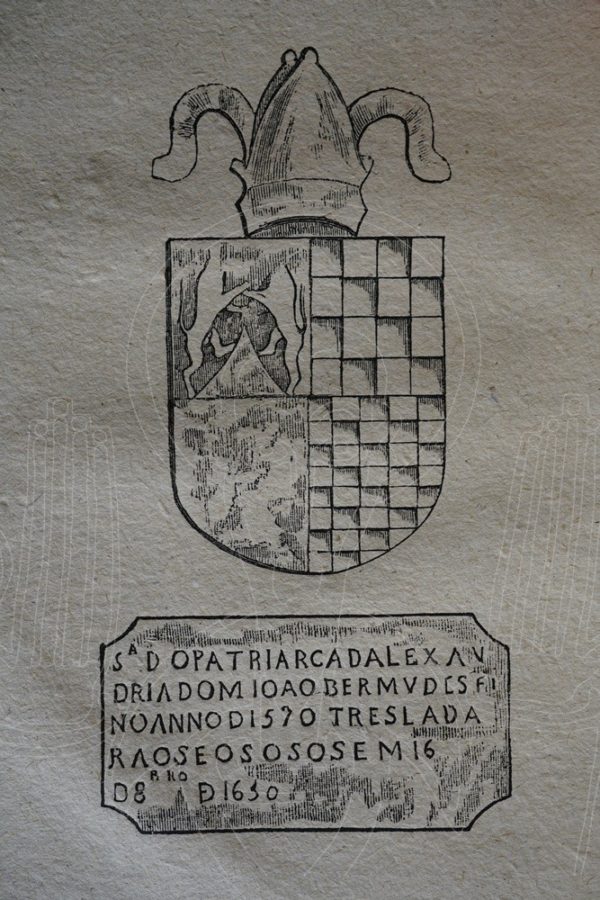 Sᴬ DOPATRIARCADALEXAN
DRIADOMIOAOBERMVDESFI
NOANNODI570 TRESLADA
RAOSEOSOSOSEM16
D8ᴮᴿᴼ Đ1650